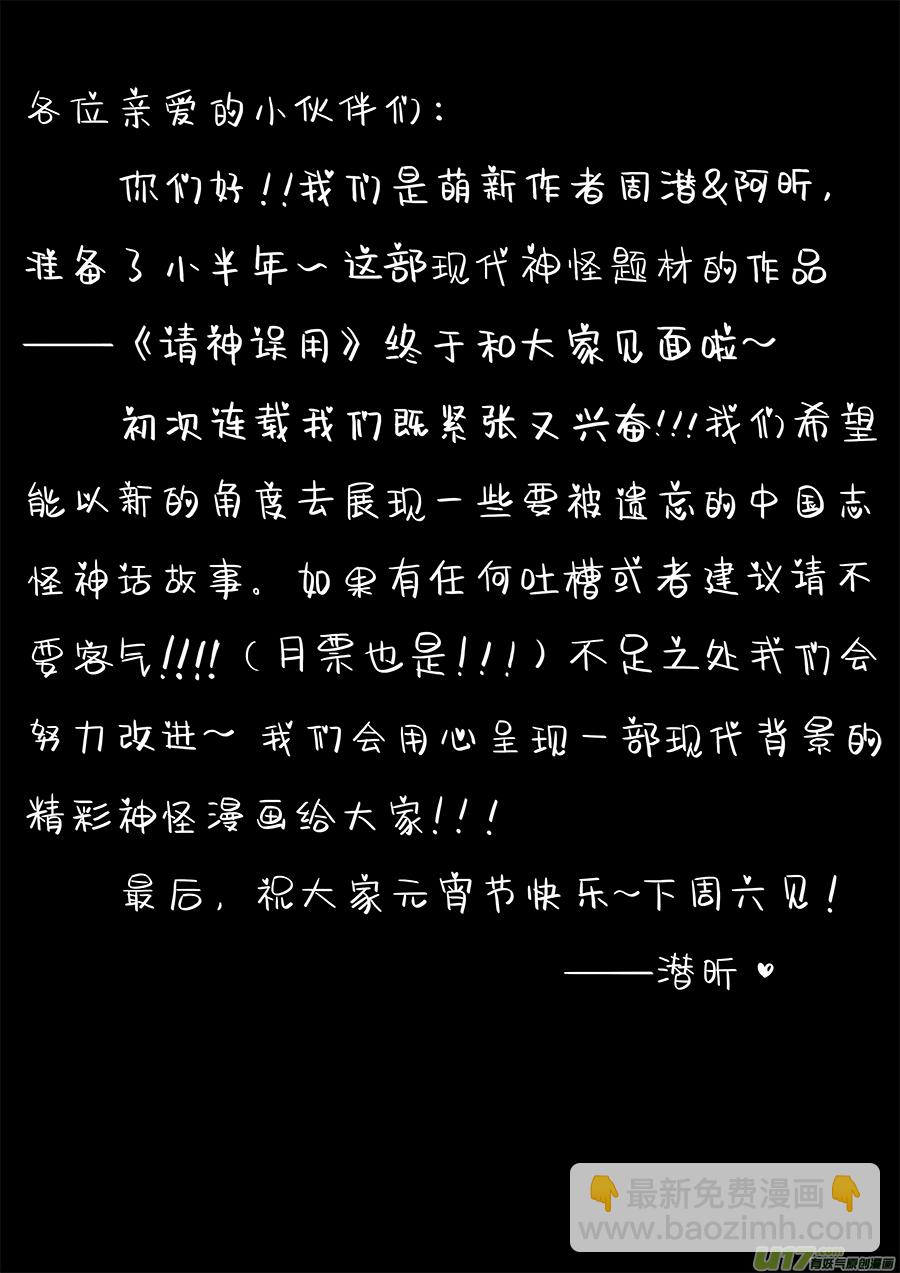 各位亲爱的小伙伴们：
你们好！！我们是萌新作者周潜&阿昕，
准备了小半年～这部现代神怪题材的作品
——《请神误用》终于和大家见面啦～
初次连载我们既紧张又兴奋！！！我们希望
能以新的角度去展现一些要被遗忘的中国志
怪神话故事。如果有任何吐槽或者建议请不
要客气！！！！（月票也是！！！）不足之处我们会
努力改进～ 我们会用心呈现一部现代背景的
精彩神怪漫画给大家！！！
最后，祝大家元宵节快乐～下周六见！
——潜昕♥
👇最新免费漫画👇
www.baozimh.com
U17.com
有妖气原创漫画